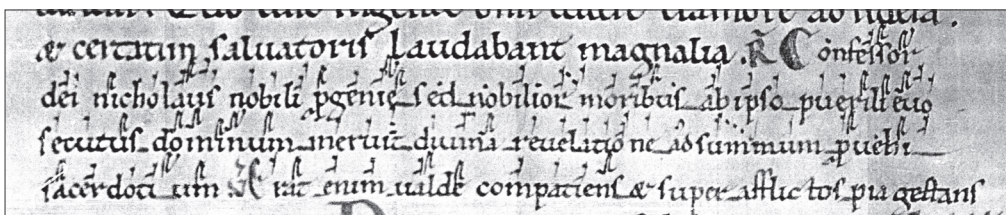 & certatim saluatoris laudabant magnalia . R̃ Confessor
dei nicholaus nobili ꝓgenie sed nobilior moribus ab ipso puerili euo
secutus dominum meruit diuina reuelatione ad summum ꝓuehi
sacerdotium ℣ Erat enim ualde compatiens & super afflictos pia gestans